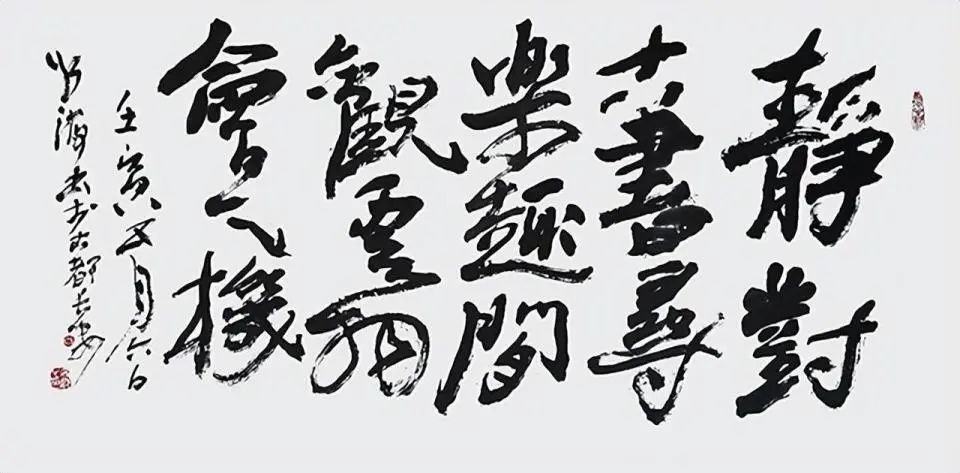 靜對
古書尋
樂趣閒
觀雲物
會天機
壬寅五月六日
古都長安